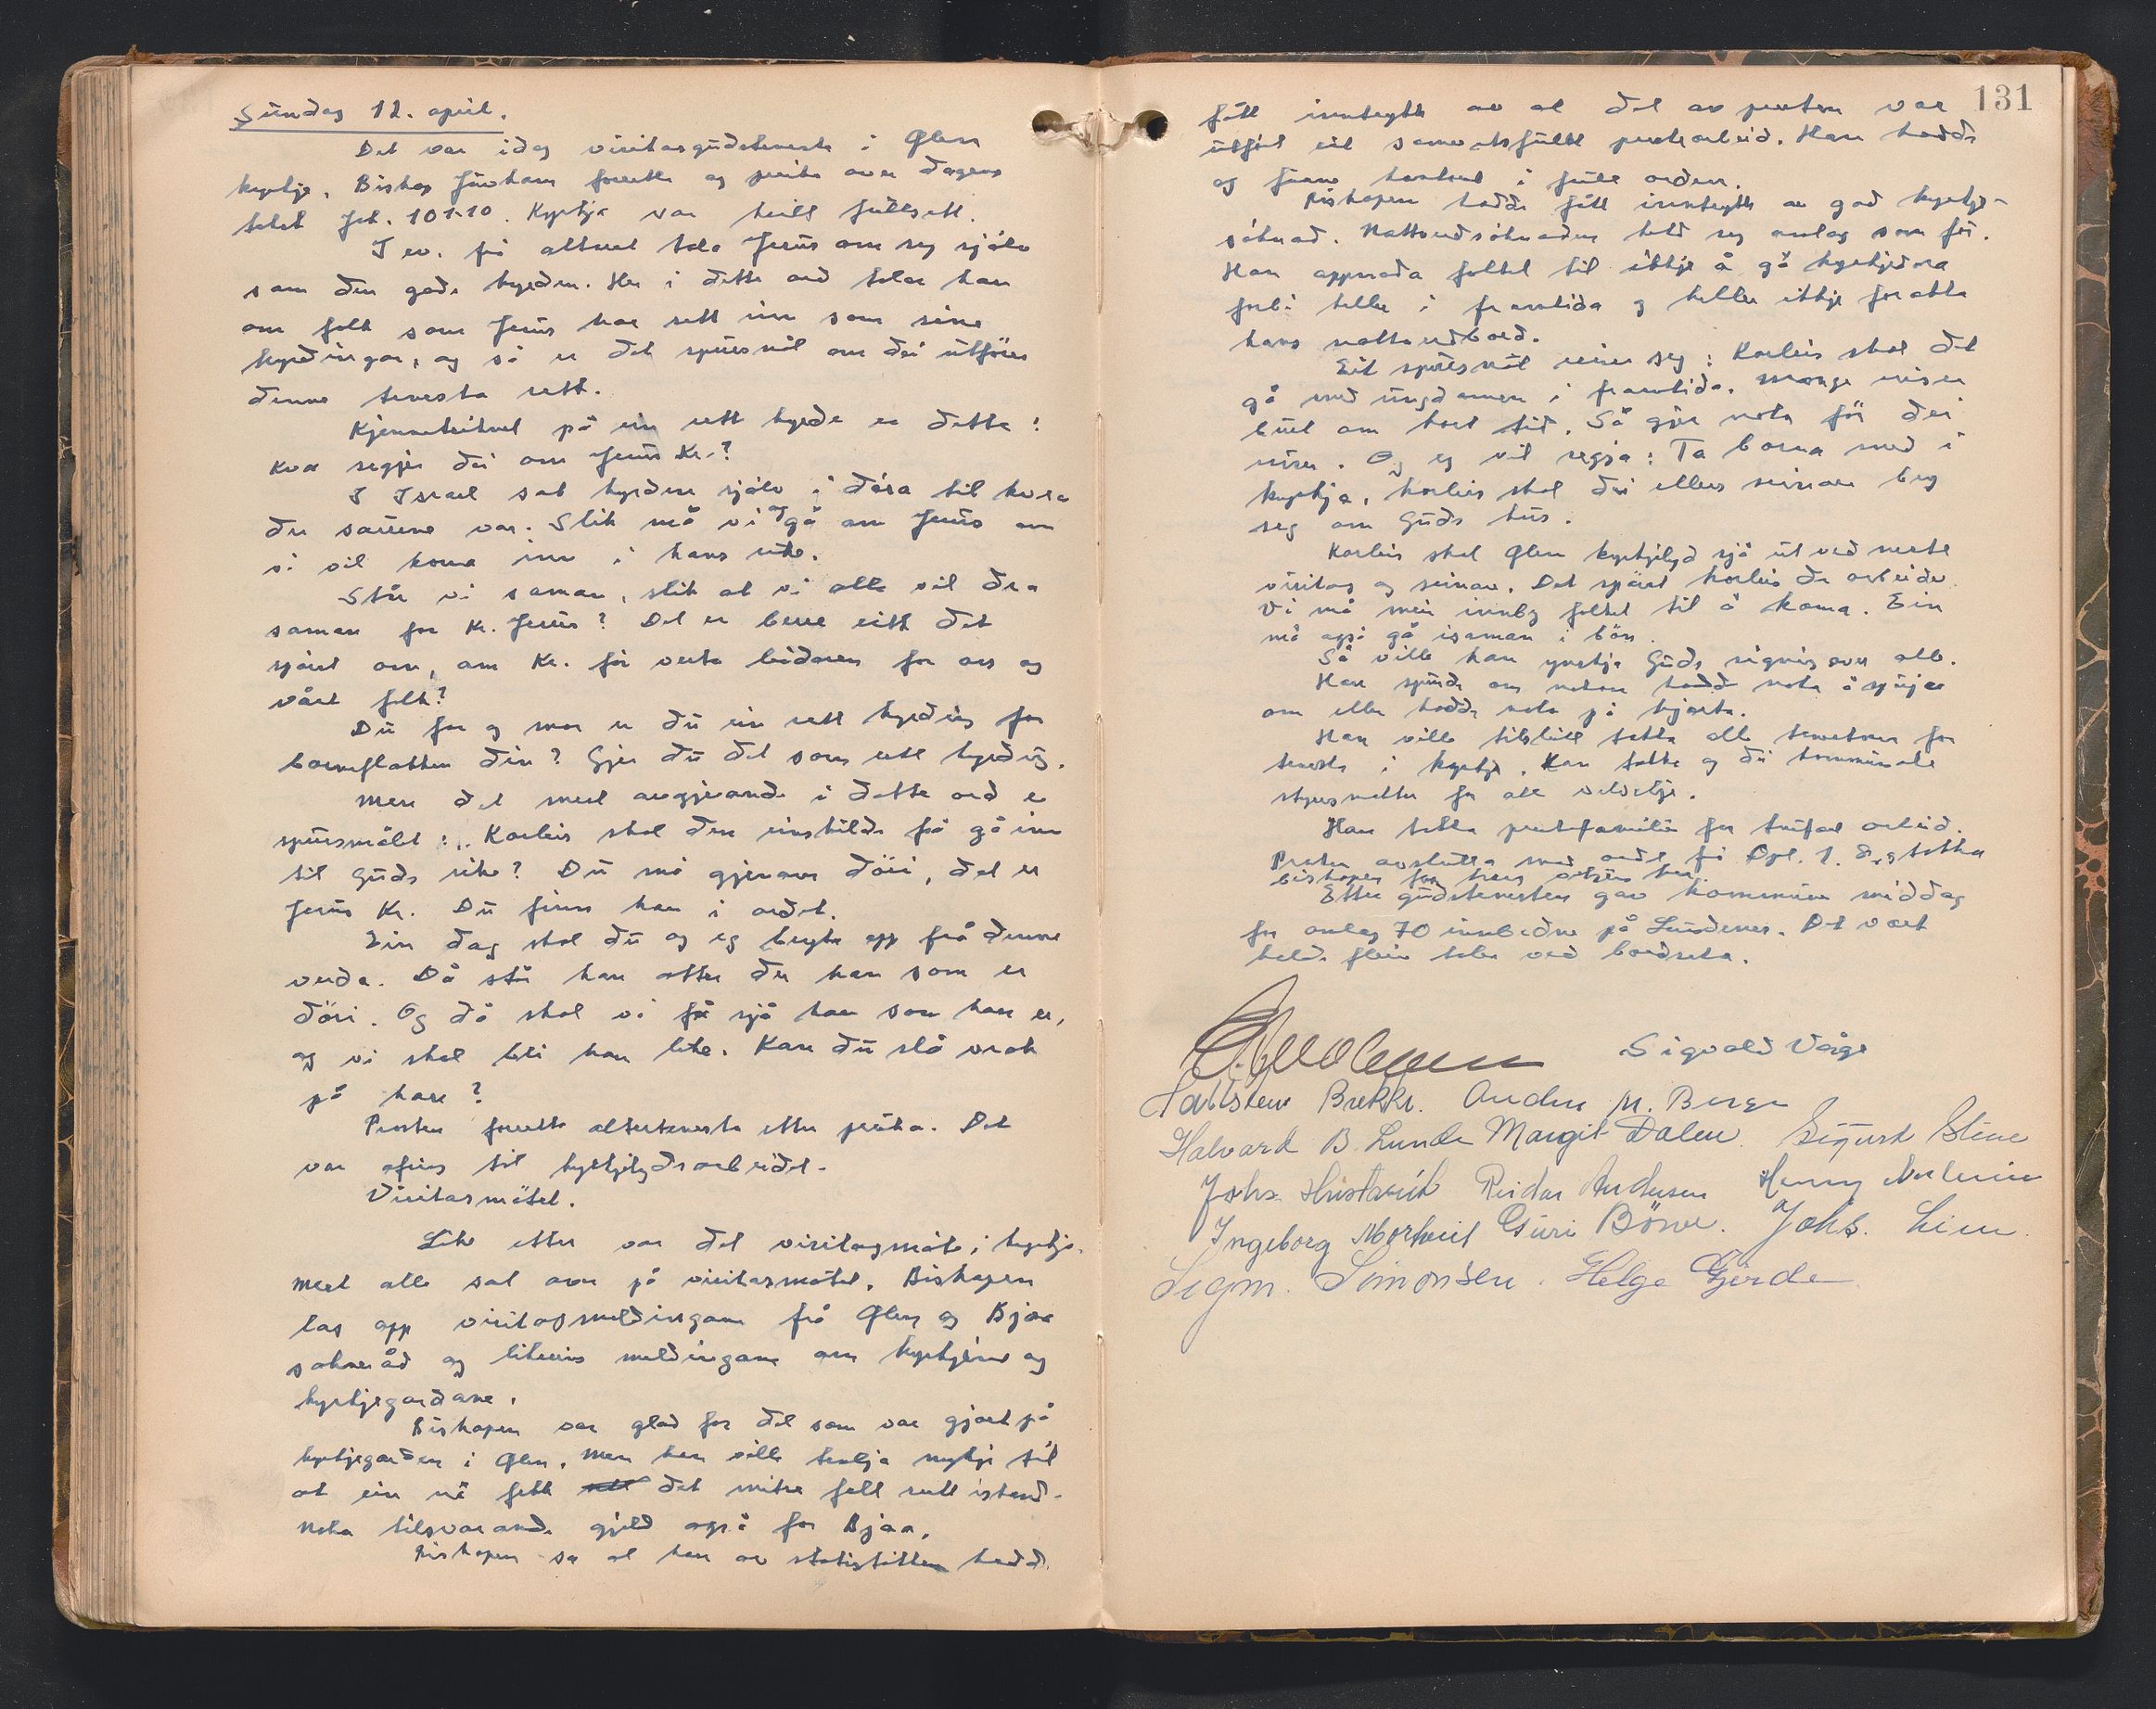 Sundag 12. april.
Det var idag visitasgudsteneste i Ølen
kyrkje. Biskop Juvkam forretta og preika over dagens
tekst Joh. 10 1-10. Kyrkja var heilt fullsett.
I ev. frå altaret tala Jesus om seg sjølv
som den gode hyrden. Her i dette ord talar han
om folk som Jesus har sett inn som sine
hyrdingar, og så er det spursmål om dei utfører
denne tenesta rett.
Kjenneteiknet på ein rett hyrde er dette:
Kva segjer dei om Jesus Kr.?
I Israel sat hyrden sjølv i døra til kvea
der sauene var. Slik må vi og gå om Jesus om
vi vil koma inn i hans rike.
Står vi saman, slik at vi alle vil dra
saman for Kr. Jesus? Det er berre eitt det
spørst om, om Kr. får verta bodberen for oss og
vårt folk?
Du far og mor er du ein rett hyrding for
barneflokken din? Gjer du det som rett hyrding.
Men det mest avgjerande i dette ord er
spursmålet: Korleis skal den einskilde få gå inn
til Guds rike? Du må gjenom døri, det er
Jesus Kr. Du finn han i ordet.
Ein dag skal du og eg bryta opp frå denne
verda. Då står han atter der han som er
døri. Og då skal vi få sjå han som han er,
og vi skal bli han like. Kan du slå vrak
på han?
Presten forretta altertenesta etter preika. Det
var ofring til kyrkjelydsarbeidet.
Visitasmøtet.
Like etter var det visitasmøte i kyrkja.
Mest alle sat over på visitasmøtet. Biskopen
las opp visitasmeldingane frå Ølen og Bjoa
sokneråd og likeeins meldingane om kyrkjene og
kyrkjegardane.
Biskopen var glad for det som var gjort på
kyrkjegarden i Ølen. Men han ville henlja mykje til
at ein nå fekk det indre fall rett istand.
Noko tilsvarande gjeld også for Bjoa.
Biskopen sa at han av statistikken hadde
131
fått inntrykk av at det av presten var
utført eit samvetsfullt prestearbeid. Han hadde
og funne kontoret i full orden.
Biskopen hadde fått inntrykk av god kyrkje-
søknad. Nattverdsøknaden held seg omlag som før.
Han oppmoda folket til ikkje å gå kyrkjedøra
forbi heller i framtida og heller ikkje forakta
hans nattverdbord.
Eit spursmål reiser seg: Korleis skal det
gå med ungdomen i framtida. Mange reiser
burt om kort tid. Så gjer noko før dei
reiser. Og eg vil segja: Ta borna med i
kyrkja, korleis skal dei ellers seinare bry
seg om Guds hus.
Korleis skal Ølen kyrkjelyd sjå ut ved neste
visitas og seinare. Det spørst korleis de arbeider.
Vi må meir innby folket til å koma. Ein
må også gå isaman i bøn.
Så ville han ynskja Guds signing over alle.
Han spurde om nokon hadde noko å spørja
om eller hadde noko på hjarta.
Han ville tilslutt takka alle tenestmenn for
tenesta i kyrkja. Han takka og dei kommunale
styresmakter for all velvilje.
Han takka prestfamilien for trufast arbeid.
Presten avslutta med ordet frå Opl. 1. 8, og takka
biskopen for hans
Etter gudstenesten gav kommunen middag
for omlag 70 innbedne på Lundenes. Det vart
halde fleire talar ved bordseta.
Sigvald Våge
Hallstein Brekke. Anders M. Berge
Halvard B. Lunde Margit Dalen. Sigurd Bline
Johs. Hustveit Reidar Andersen Henry
Ingeborg Mortveit Guri Bönne. Johs. Lien
Sigm. Simonsen. Helge Gjerde